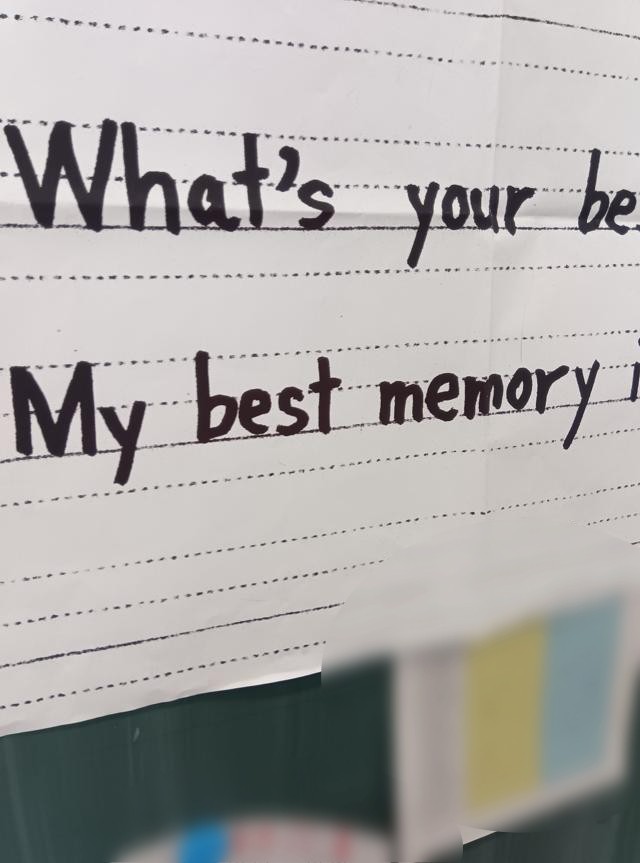 What's your be
My best memory i